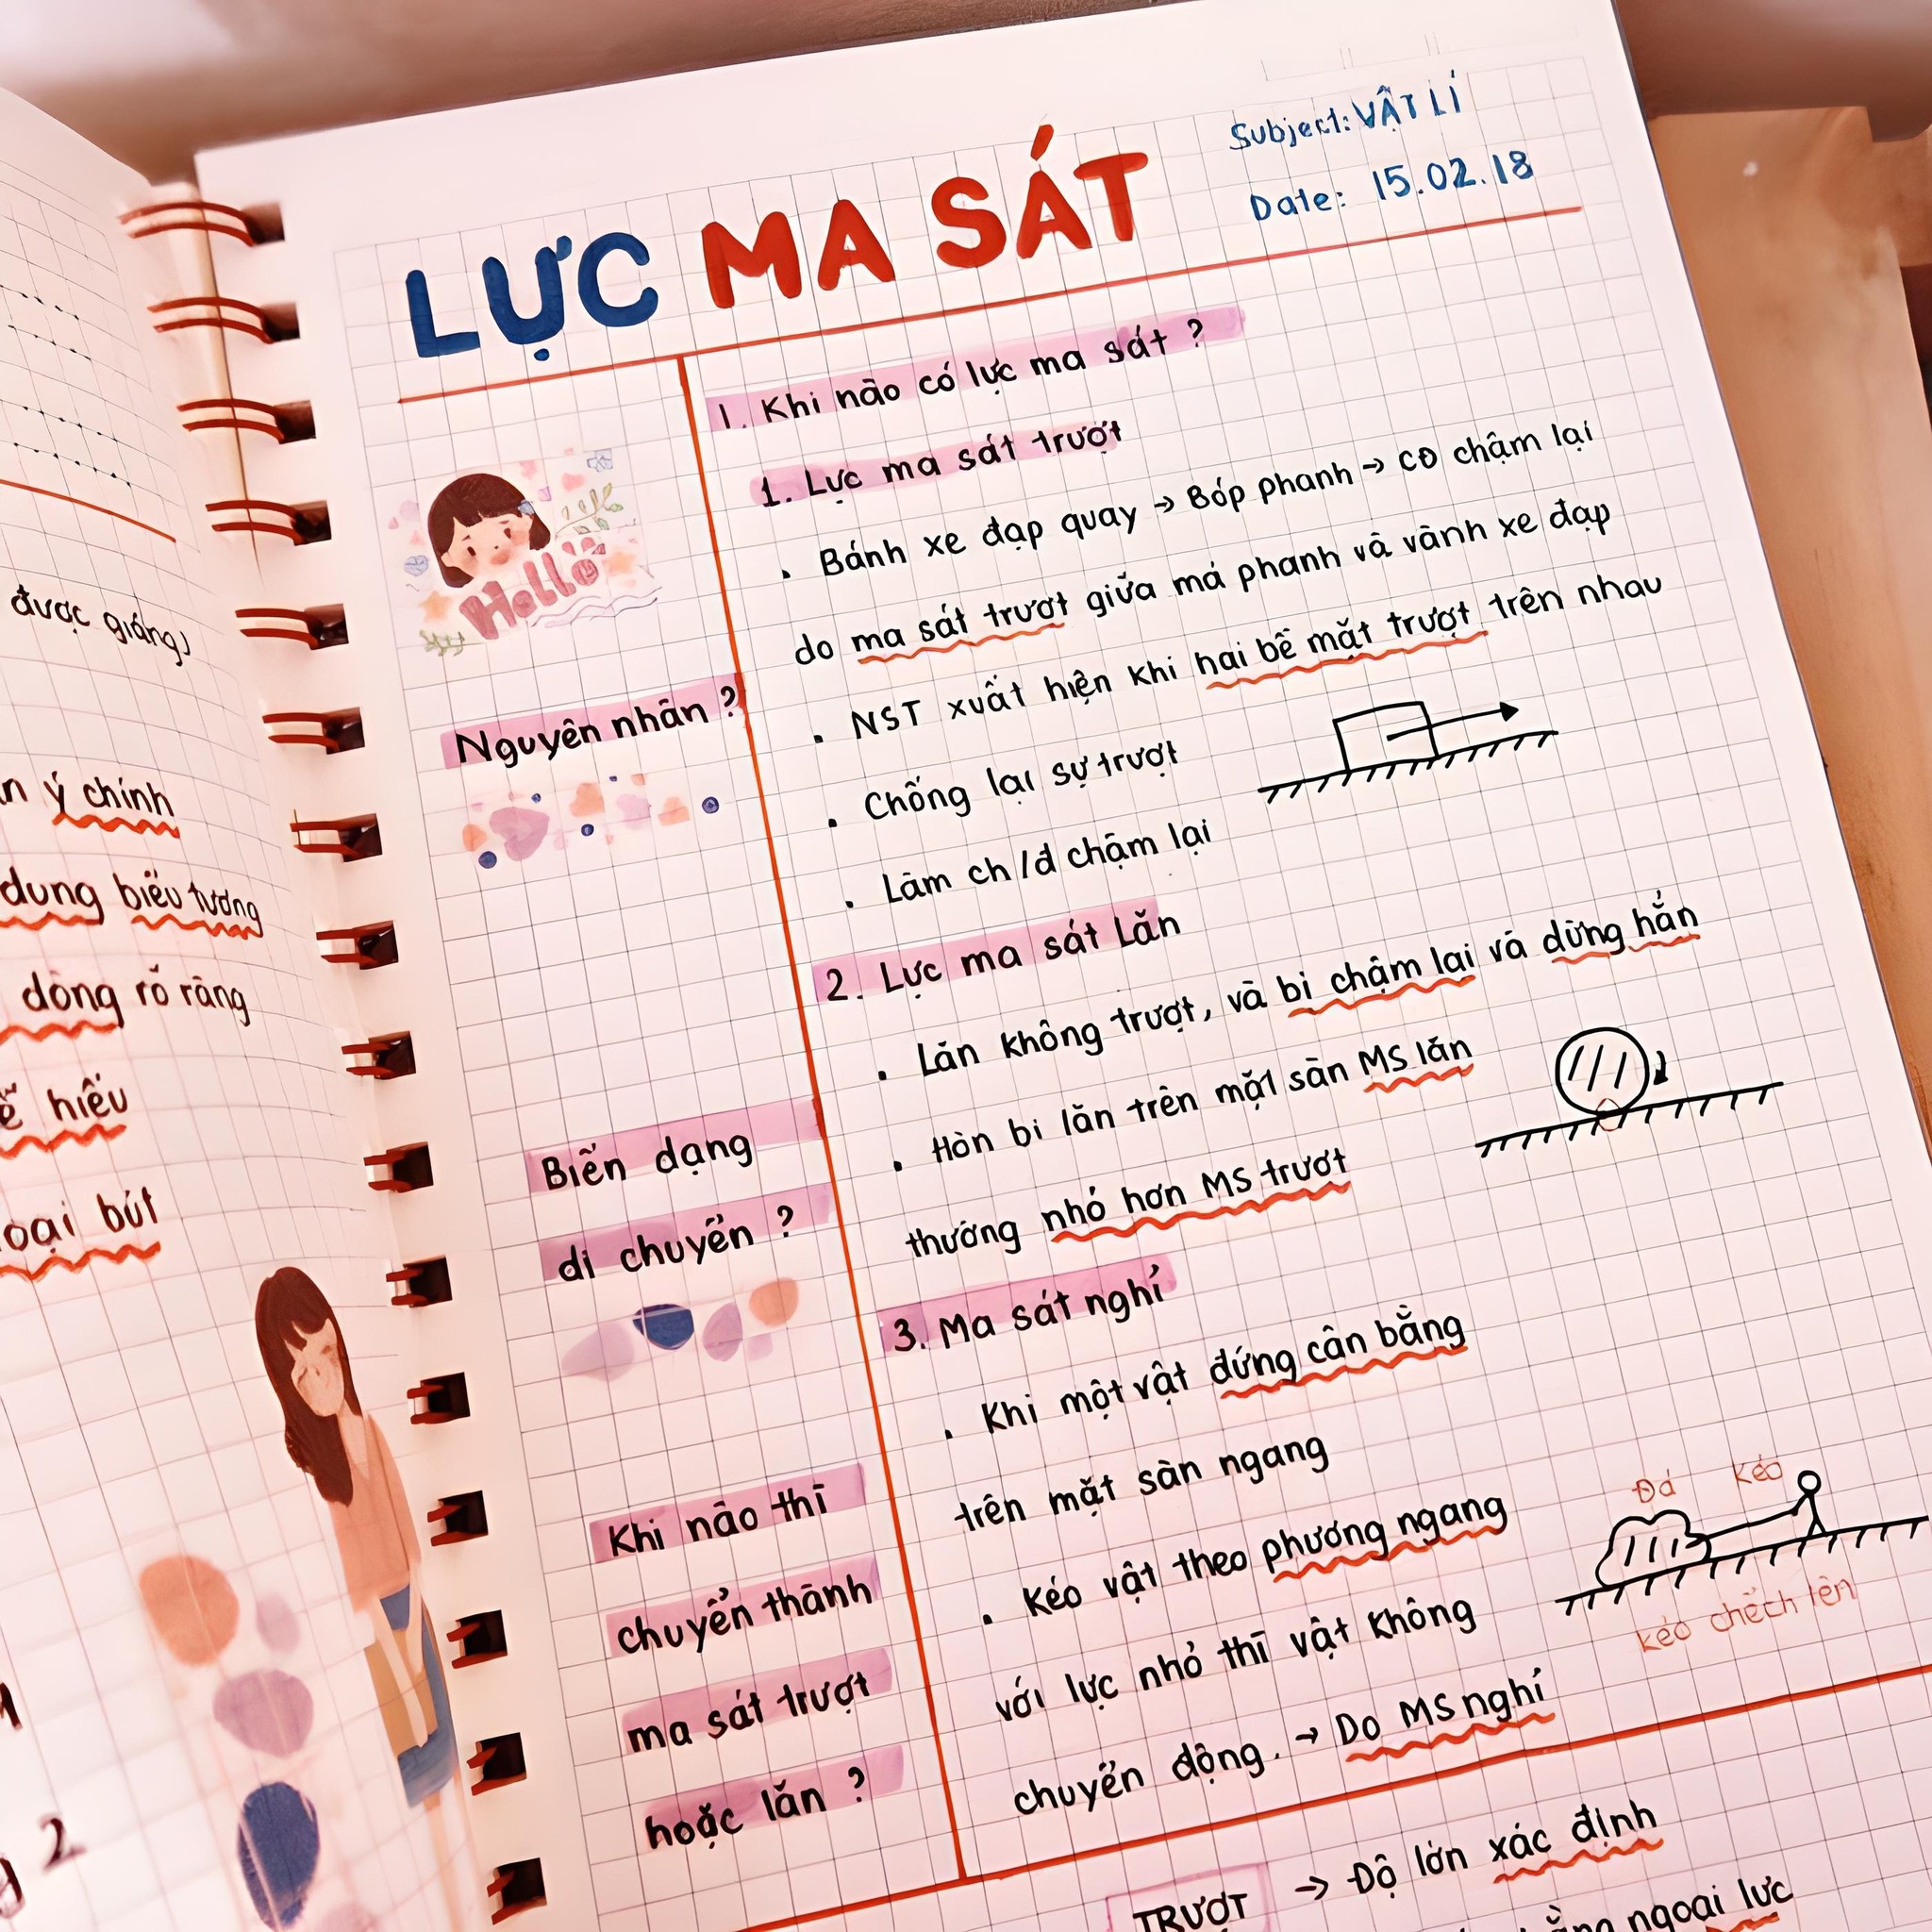 được giảng)
ý chính
dung biểu tượng
dòng rõ ràng
hiểu
bút
2
LỰC MA SÁT
Subject: VẬT LÍ
Date: 15.02.18
Hello
Nguyên nhân ?
Biến dạng
di chuyển ?
Khi nào thì
chuyển thành
ma sát trượt
hoặc lăn ?
I. Khi nào có lực ma sát ?
1. Lực ma sát trượt
. Bánh xe đạp quay → Bóp phanh → CĐ chậm lại
do ma sát trượt giữa má phanh và vành xe đạp
. NST xuất hiện khi hai bề mặt trượt trên nhau
. Chống lại sự trượt
. Làm ch/đ chậm lại
2. Lực ma sát Lăn
. Lăn không trượt, và bị chậm lại và dừng hẳn
. Hòn bi lăn trên mặt sàn MS lăn
thường nhỏ hơn MS trượt
3. Ma sát nghỉ
. Khi một vật đứng cân bằng
trên mặt sàn ngang
. Kéo vật theo phương ngang
với lực nhỏ thì vật không
chuyển động. → Do MS nghỉ
Đá kéo
kéo chếch lên
TRƯỢT → Độ lớn xác định
ngoại lực